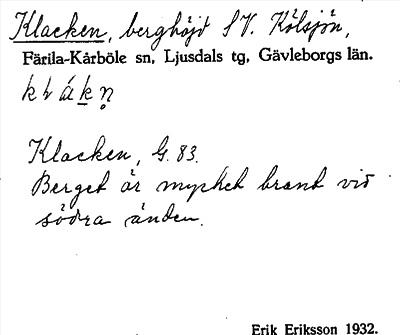 Klacken, berghöjd S V. Kölsjön,
Färila-Kårböle sn, Ljusdals tg, Gävleborgs län.
Klacken, G. 83.
Berget är mycket brant vid
södra änden.
Erik Eriksson 1932.